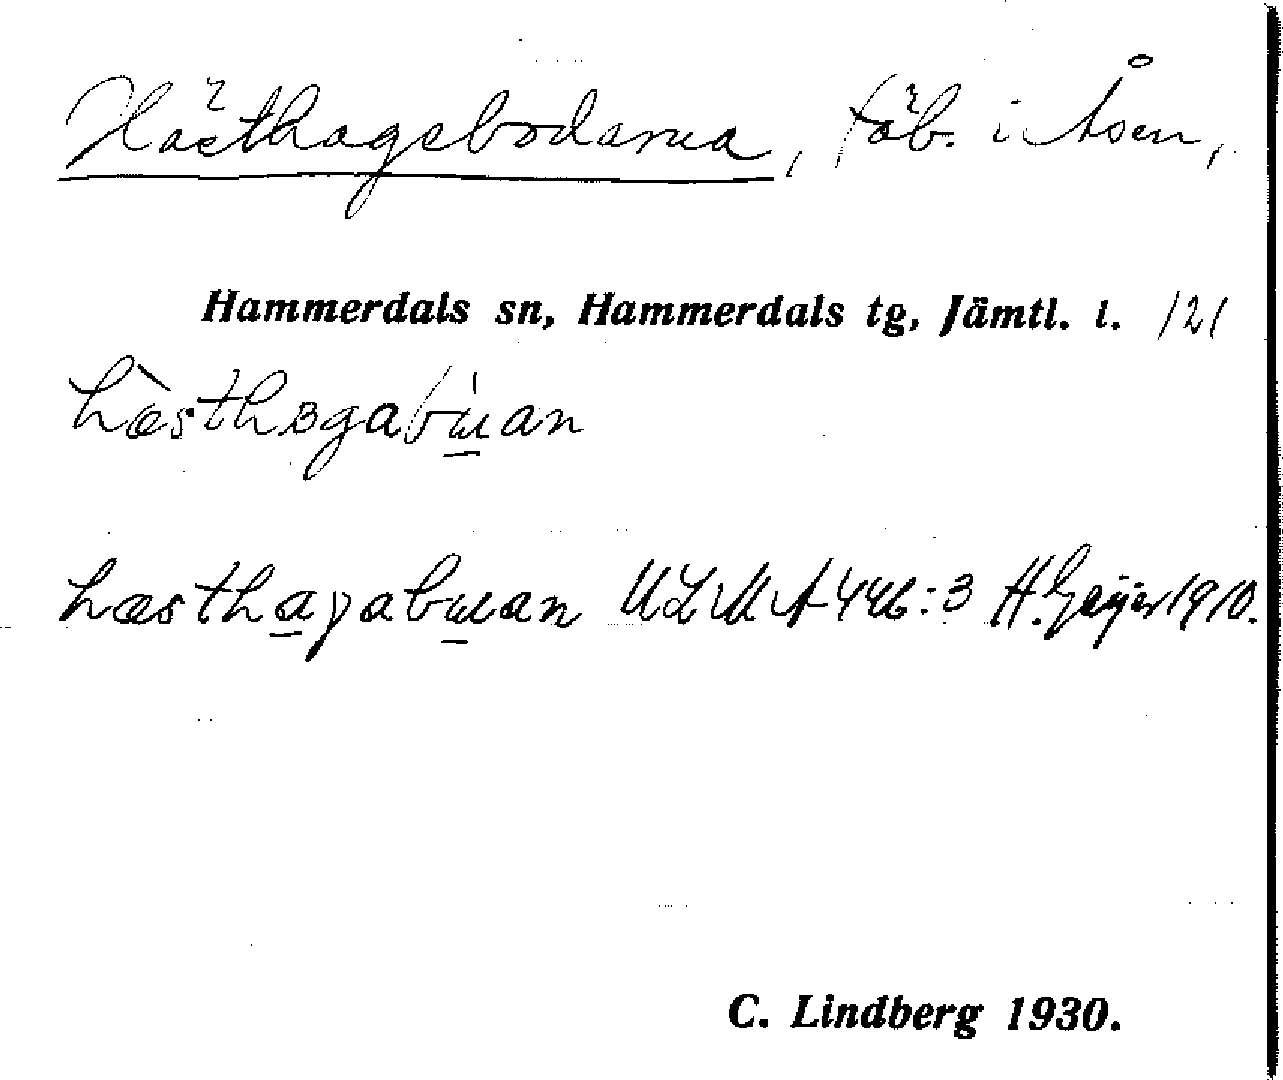 Hästhagebodarna, fäb. i Åsen,
Hammerdals sn, Hammerdals tg, Jämtl. l. 121
hæ̀sthɞgabɯan
hæsthaγabɯan ULMA 446:3 H. Geijer 1910.
C. Lindberg 1930.